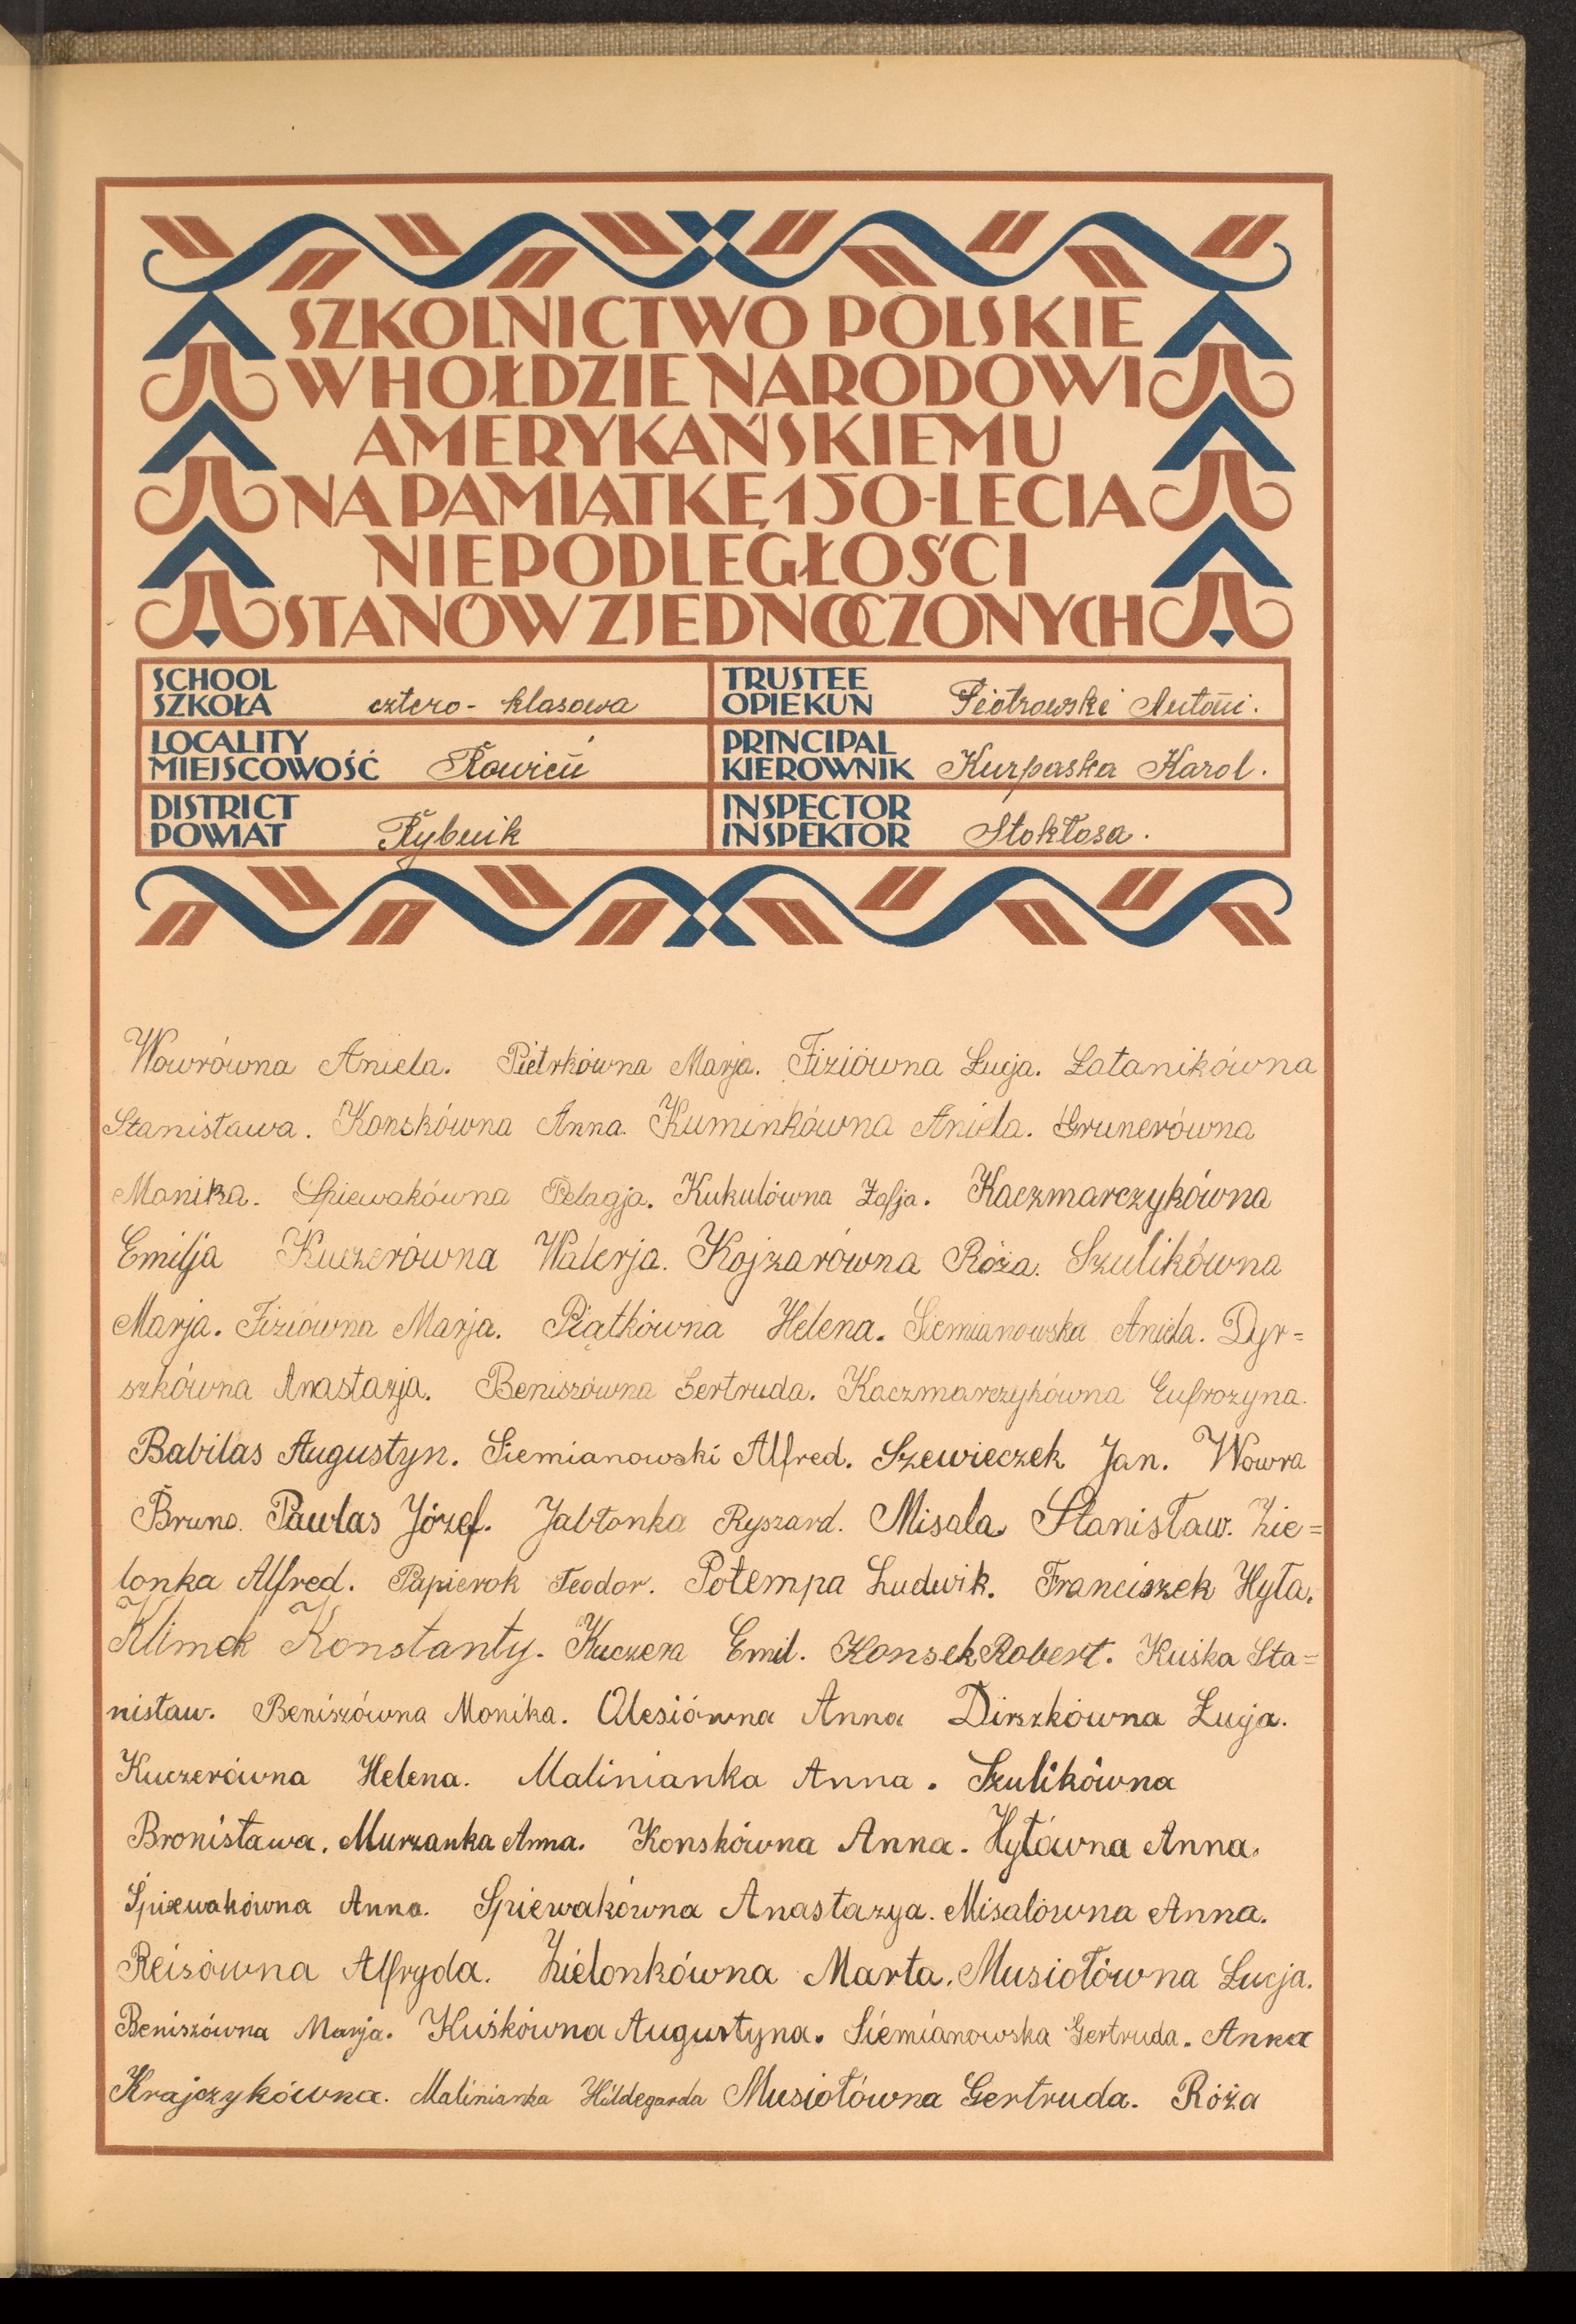 SZKOLNICTWO POLSKIE
W HOŁDZIE NARODOWI
AMERYKAŃSKIEMU
NA PAMIĄTKĘ 150-LECIA
NIEPODLEGŁOŚCI
STANÓW ZJEDNOCZONYCH
SCHOOL
SZKOŁA cztero-klasowa
TRUSTEE
OPIEKUN Piotrowski Antoni.
LOCALITY
MIEJSCOWOŚĆ Rowień
PRINCIPAL
KIEROWNIK Kurpaska Karol.
DISTRICT
POWIAT Rybnik
INSPECTOR
INSPEKTOR Stokłosa.
Wowrówna Aniela. Pietrkówna Marja. Fiziówna Łucja. Łatanikówna
Stanisława. Konskówna Anna. Kuminkówna Aniela. Grunerówna
Monika. Spiewakówna Pelagja. Kukulówna Zofja. Kaczmarczykówna
Emilja Kuczerówna Walerja. Kojzarówna Róża. Szulikówna
Marja. Fiziówna Marja. Piątkówna Helena. Siemianowska Aniela. Dyr=
szkówna Anastazja. Beniszówna Gertruda. Kaczmarczykówna Eufrozyna.
Babilas Augustyn. Siemianowski Alfred. Szewieczek Jan. Wowra
Bruno. Pawlas Józef. Jabłonka Ryszard. Misala Stanisław. Zie=
lonka Alfred. Papierok Teodor. Potempa Ludwik. Franciszek Hyła.
Klimek Konstanty. Kuczera Emil. Konsek Robert. Kuśka Sta=
nisław. Beniszówna Monika. Olesiówna Anna Dirszkówna Łucja.
Kuczerówna Helena. Malinianka Anna. Szulikówna
Bronisława. Murzanka Anna. Konskówna Anna. Hyłówna Anna.
Śpiewakówna Anna. Spiewakówna Anastazya. Misalówna Anna.
Reisówna Alfryda. Zielonkówna Marta. Musiołówna Łucja.
Beniszówna Marja. Kuśkówna Augustyna. Siemianowska Gertruda. Anna
Krajczykówna. Malinianka Hildegarda Musiołówna Gertruda. Róża